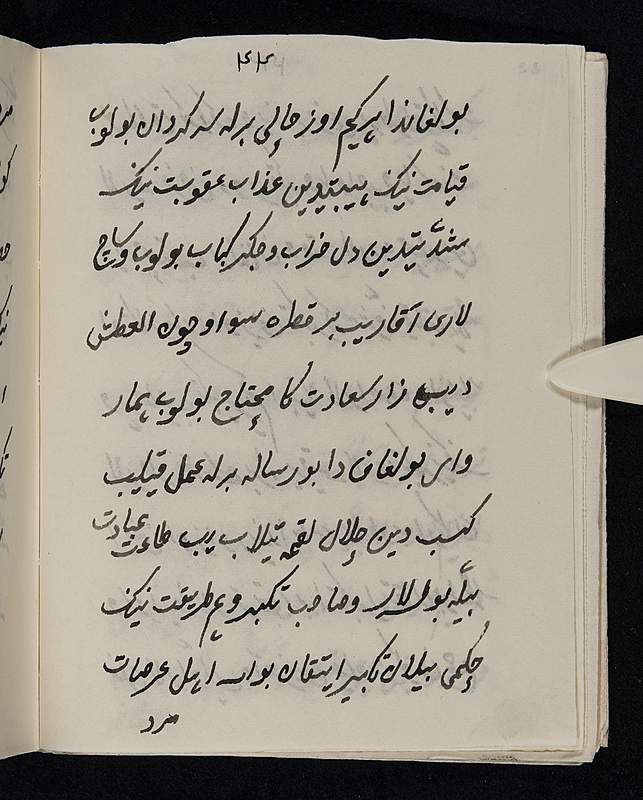 ۴۴
بولغاندا هر کیم اوز حالی برله سرکردان بولوب
قیامت نینک هیبتیدین عذاب عقوبت نینک
شدّتیدین دل خراب و جگر کباب بولوب و ساچ
لاری آقاریب بر قطره سو اوچون العطش
دیب زار سعادت کا محتاج بولوب بیمار
بولغان دا بو رساله برله عمل قیلیب
کسب دین حلال لقمه تیلاب یب طاعت عبادت
بیله بولسلار و صاحب تکبیر و هم طریقت نینک
حکمی بیلان تکبیر ایتقان بولسه اهل عرصات